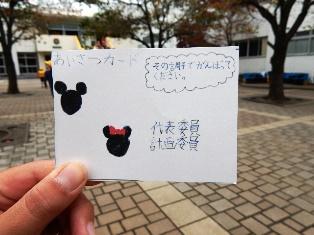 あいさつカード
その調子でがんばって
ください。
代表委員
計画委員